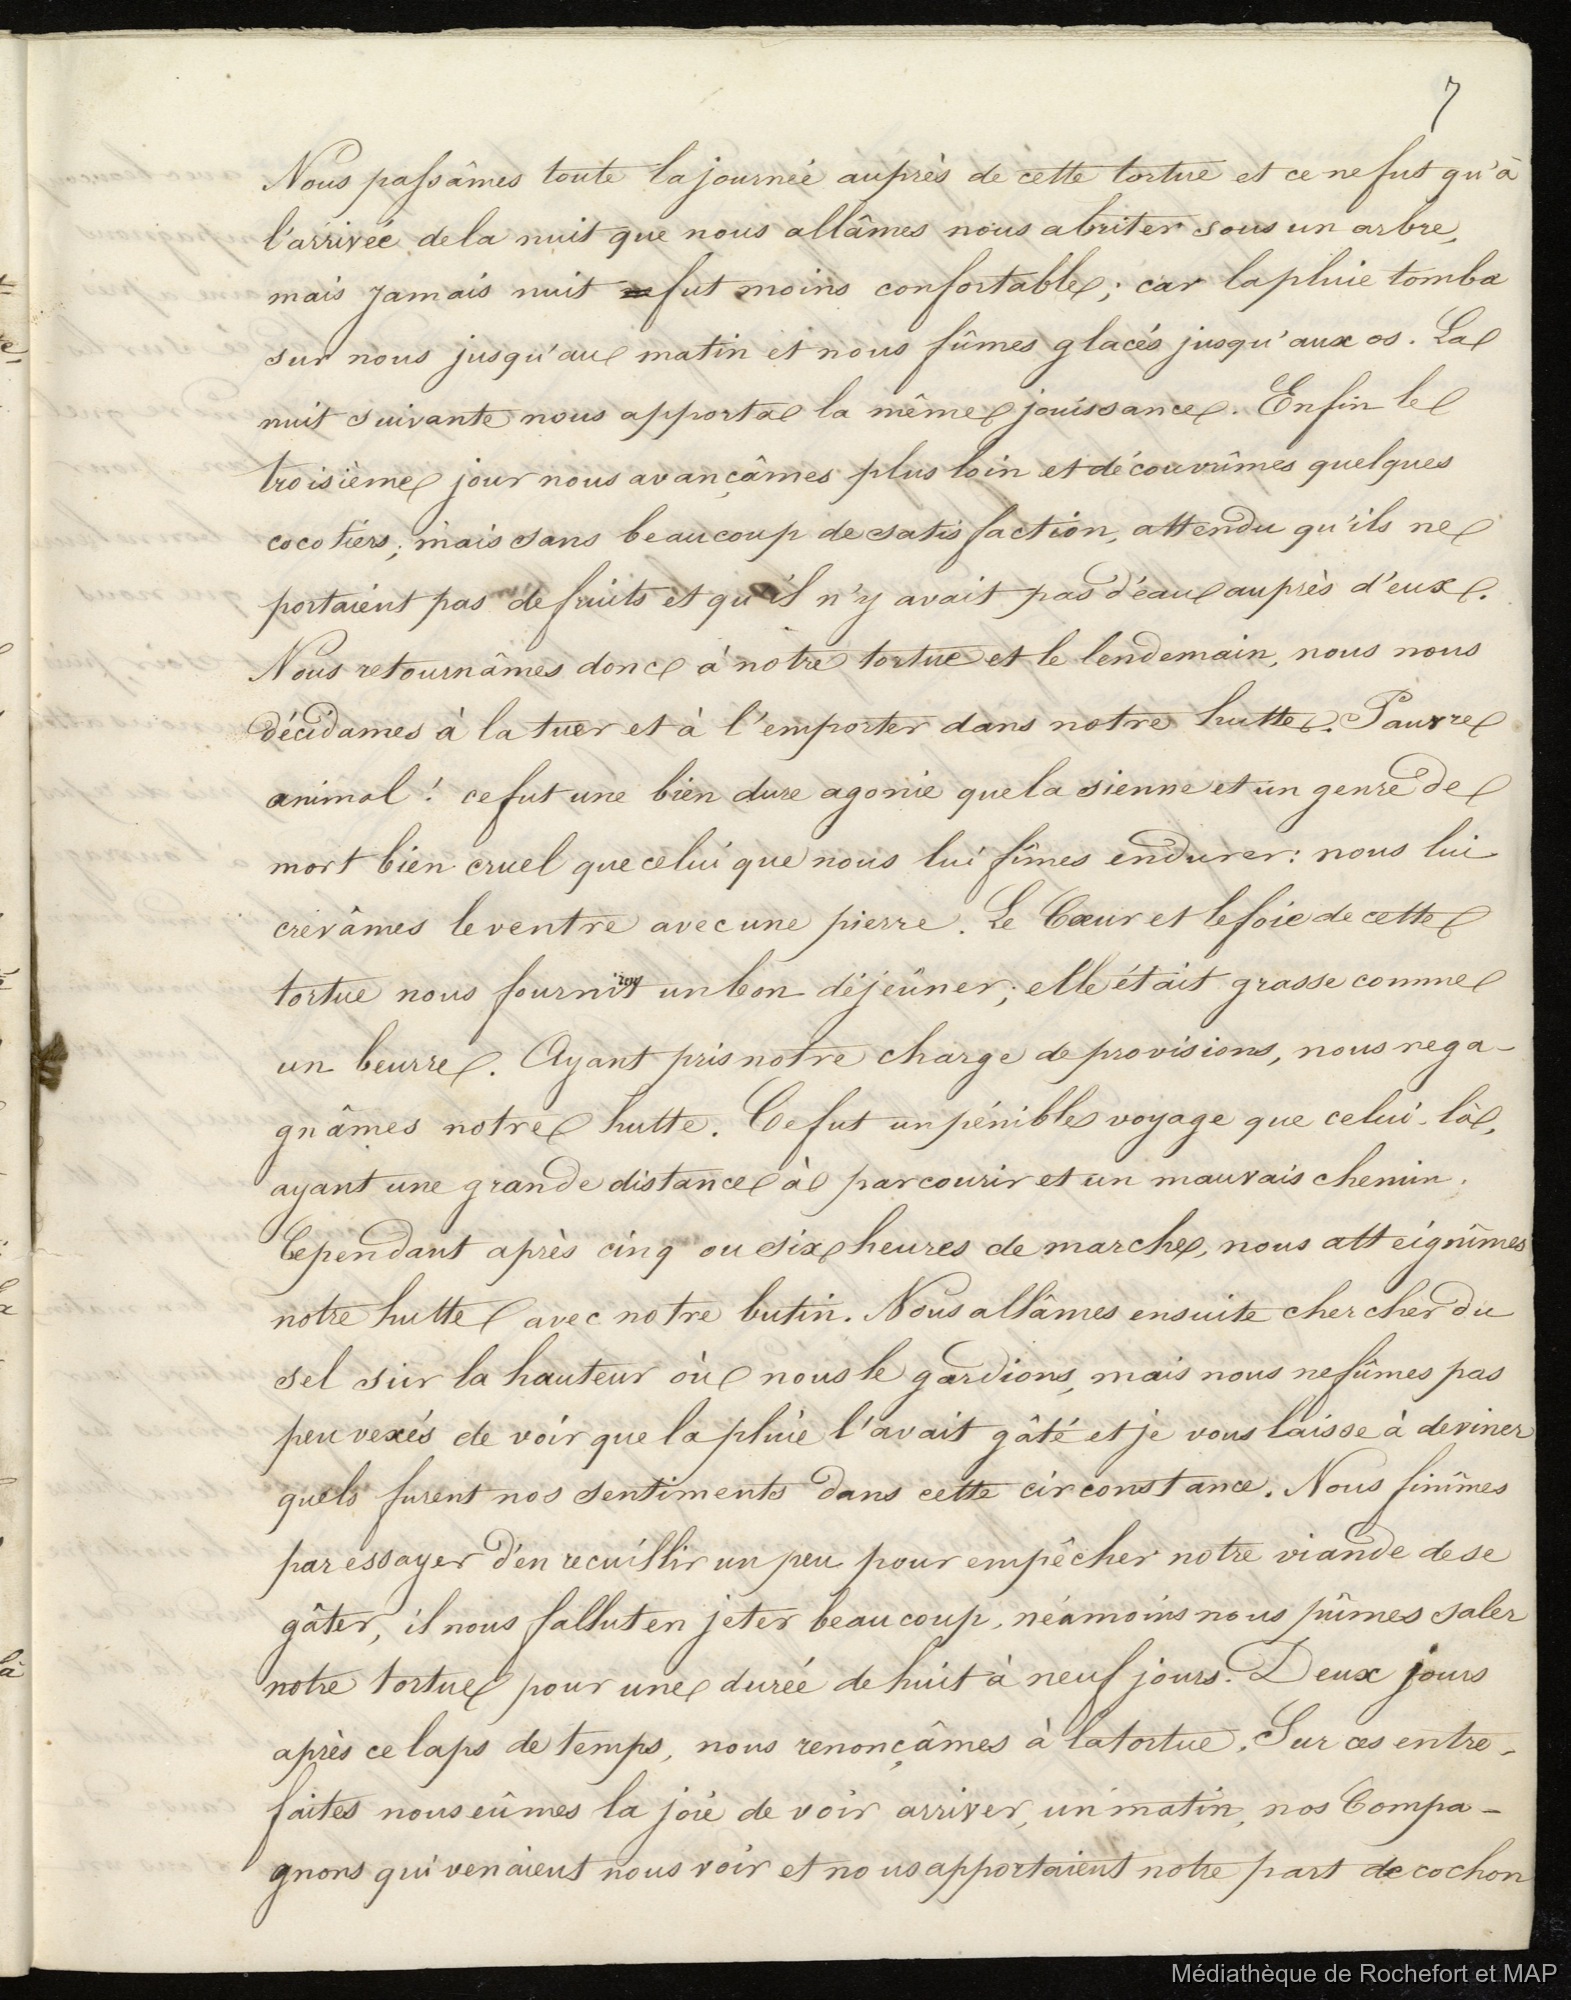 7
Nous passâmes toute la journée auprès de cette tortue et ce ne fut qu'à
l'arrivée de la nuit que nous allâmes nous abriter sous un arbre,
mais jamais nuit fut moins confortable; car la pluie tomba
sur nous jusqu'au matin et nous fûmes glacés jusqu'aux os. La
nuit suivante nous apporta la même jouissance. Enfin le
troisième jour nous avançâmes plus loin et découvrîmes quelques
cocotiers; mais sans beaucoup de satisfaction, attendu qu'ils ne
portaient pas de fruits et qu'il n'y avait pas d'eau auprès d'eux.
Nous retournâmes donc à notre tortue et le lendemain, nous nous
décidames à la tuer et à l'emporter dans notre hutte. Pauvre
animal! ce fut une bien dure agonie que la sienne et un genre de
mort bien cruel que celui que nous lui fîmes endurer: nous lui
crevâmes le ventre avec une pierre. Le Cœur et le foie de cette
tortue nous fournit un bon déjeûner; elle était grasse comme
un beurre. Ayant pris notre charge de provisions, nous rega-
gnâmes notre hutte. Ce fut un pénible voyage que celui-là,
ayant une grande distance à parcourir et un mauvais chemin.
Cependant après cinq ou six heures de marche, nous atteignîmes
notre hutte avec notre butin. Nous allâmes ensuite chercher du
sel sur la hauteur où nous le gardions, mais nous ne fûmes pas
peu vexés de voir que la pluie l'avait gâté et je vous laisse à deviner
quels furent nos sentiments dans cette circonstance. Nous finîmes
par essayer d'en recuillir un peu pour empêcher notre viande de se
gâter, il nous fallut en jeter beaucoup, néamoins nous pûmes saler
notre tortue pour une durée de huit à neuf jours. Deux jours
après ce laps de temps, nous renonçâmes à la tortue. Sur ces entre-
faites nous eûmes la joie de voir arriver, un matin, nos Compa-
gnons qui venaient nous voir et nous apportaient notre part de cochon
Médiathèque de Rochefort et MAP